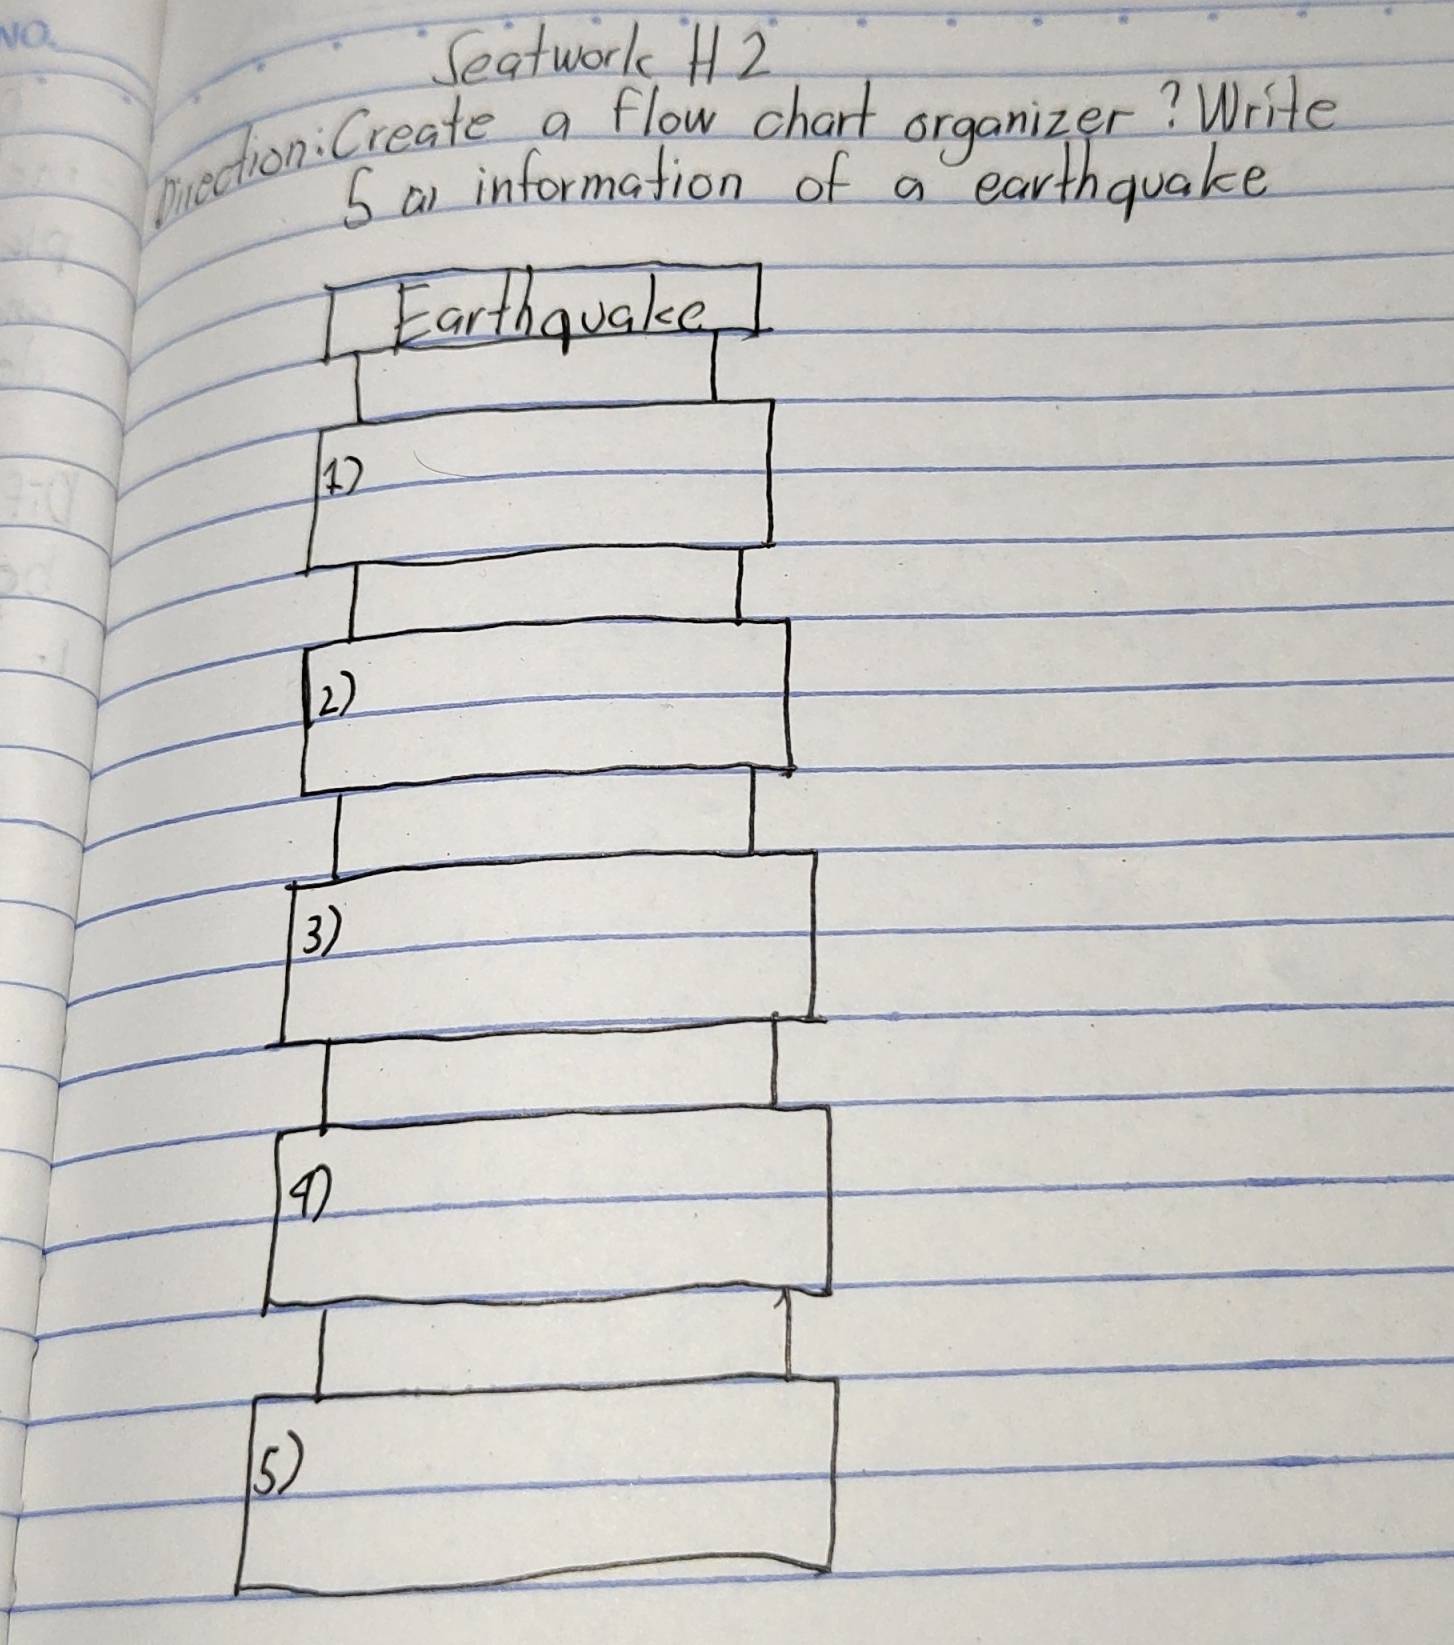 NO.
Seatwork # 2
Direction: Create a flow chart organizer? Write
5 information of a earthquake
Earthquake
1)
2)
3)
4)
5)